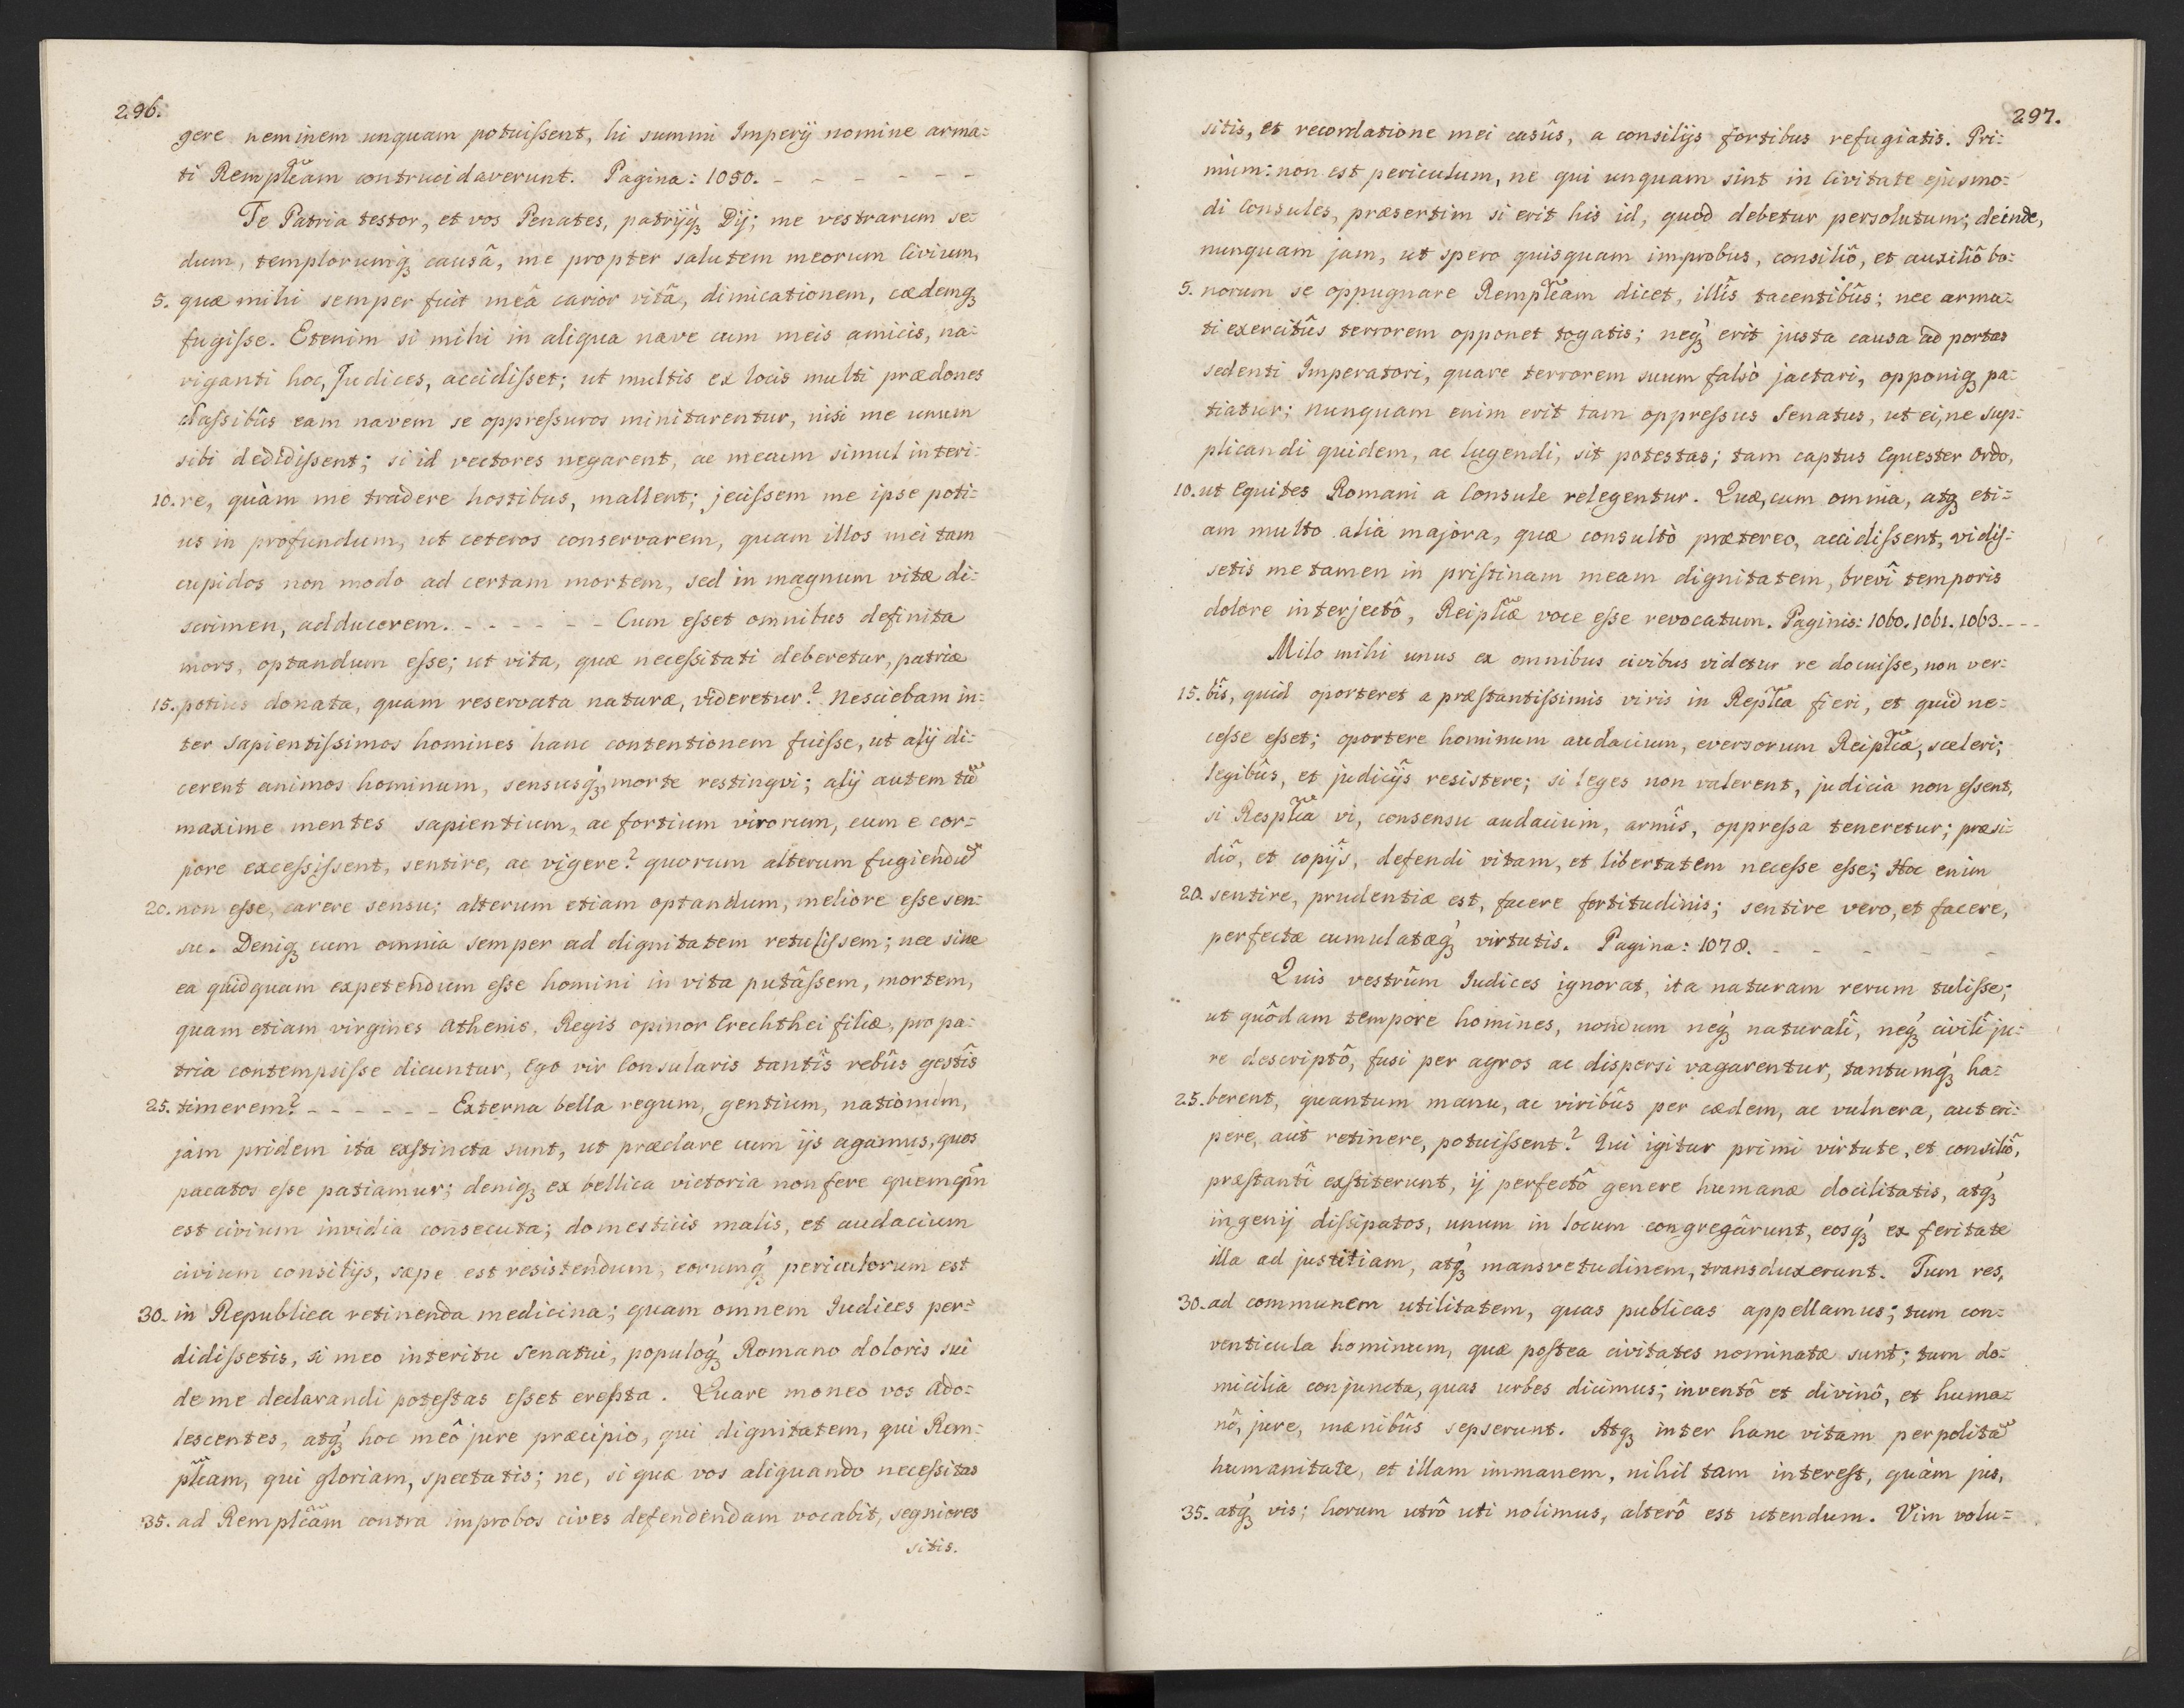 296.
gere neminem unquam potuiſsent, hi summi Imperij nomine arma=
ti Rempl͠cam contrucidaverunt. Pagina: 1050. - - - - - -
Te Patria testor, et vos Penates, patrijq́ꝫ Dij; me vestrarum se=
dum, templorumq́ꝫ causâ, me propter salutem meorum Civium,
5. quæ mihi semper fuit meâ carior vitâ, dimicationem, cædemqꝫ
fugiſse. Etenim si mihi in aliqua nave cum meis amicis, na=
viganti hoc, Judices, accidiſset; ut multis ex locis multi prædones
claſsibûs eam navem se oppreſsuros minitarentur, nisi me unum
sibi dedidiſsent; si id vectores negarent, ac mecum simul interi=
10. re, quàm me tradere hostibus, mallent; jeciſsem me ipse poti=
us in profundum, ut ceteros conservarem, quam illos mei tam
cupidos non modo ad certam mortem, sed in magnum vitæ di=
scrimen, adducerem. - - - - - - Cum eſset omnibus definita
mors, optandum eſse; ut vita, quæ neceſsitati deberetur, patriæ
15. potius donata, quam reservata naturæ, videretur? Nesciebam in=
ter sapientiſsimos homines hanc contentionem fuiſse, ut alij di=
cerent animos hominum, sensusq́ꝫ, morte restingvi; alij autem tu͠
maxime mentes sapientium, ac fortium virorum, cum e cor=
pore exceſsiſsent, sentire, ac vigere? quorum alterum fugiendu͠
20. non eſse, carere sensu; alterum etiam optandum, meliore eſse sen=
su. Deniqꝫ cum omnia semper ad dignitatem retuliſsem; nec sine
ea quidquam expetendum eſse homini in vita putâſsem, mortem,
quam etiam virgines Athenis, Regis opinor Erechthei filiæ, pro pa=
tria contempsiſse dicuntur, Ego vir Consularis tantîs rebûs gestîs
25. timerem? - - - - - - Externa bella regum, gentium, nationum,
jam pridem ita exſtincta sunt, ut præclare cum ijs agamus, quos
pacatos eſse patiamur; deniqꝫ ex bellica victoria non fere quemq̃m
est civium invidia consecuta; domesticis malis, et audacium
civium consilijs, sæpe est resistendum, eorumq́ꝫ periculorum est
30. in Republica retinenda medicina; quam omnem Iudices per=
didiſsetis, si meo interitu Senatui, populoq́ꝫ Romano doloris sui
de me declarandi poteſtas eſset erepta. Quare moneo vos Ado=
lescentes, atq́ꝫ hoc meô jure præcipio, qui dignitatem, qui Rem=
pl͠cam, qui gloriam, spectatis; ne, si quæ vos aliquando neceſsitas
35. ad Rempl͠cam contra improbos cives defendendam vocabit, segniores
sitis.
297.
sitis, et recordatione mei casûs, a consilijs fortibus refugiatis. Pri=
mùm: non est periculum, ne qui unquam sint in Civitate ejusmo=
di Consules, præsertim si erit his id, quod debetur persolutum; deinde,
nunquam jam, ut spero quisquam improbus, consiliô, et auxiliô bo=
5. norum se oppugnare Rempl͠cam dicet, illîs tacentibûs; nec arma=
ti exercitûs terrorem opponet togatis; neq́ꝫ erit justa causa ad portas
sedenti Imperatori, quare terrorem suum falsò jactari, opponiqꝫ pa=
tiatur; nunquam enim erit tam oppreſsus Senatus, ut ei, ne sup=
plicandi quidem, ac lugendi, sit potestas; tam captus Equester Ordo,
10. ut Equites Romani a Consule relegentur. Quæ, cum omnia, atqꝫ eti=
am multo alia majora, quæ consultò prætereo, accidiſsent, vidiſ=
setis me tamen in priſtinam meam dignitatem, brevî temporis
dolore interjectô, Reipl͠cæ voce eſse revocatum. Paginis: 1060. 1061. 1063. - - -
Milo mihi unus ex omnibus civibus videtur re docuiſse, non ver=
15. bîs, quid oporteret a præſtantiſsimis viris in Repl͠ca fieri, et quid ne=
ceſse eſset; oportere hominum audacium, eversorum Reipl͠cæ, sceleri;
legibûs, et judicijs resistere; si leges non valerent, judicia non eſsent,
si Respl͠ca vi, consensu audacium, armîs, oppreſsa teneretur; præsi=
diô, et copijs, defendi vitam, et libertatem neceſse eſse; Hoc enim
20. sentire, prudentiæ est, facere fortitudinis; sentire vero, et facere,
perfectæ cumulatæq́ꝫ virtutis. Pagina: 1078. - - - - -
Quis vestrûm Iudices ignorat, ita naturam rerum tuliſse;
ut quôdam tempore homines, nondum neq́ꝫ naturalî, neq́ꝫ civilî ju=
re descriptô, fusi per agros ac dispersi vagarentur, tantumq́ꝫ ha=
25. berent, quantum manu, ac viribûs per cædem, ac vulnera, aut eri=
pere, aut retinere, potuiſsent? Qui igitur primi virtute, et consiliô,
præſtantî exſtiterunt, ij perfectô genere humanæ docilitatis, atq́ꝫ
ingenij diſsipatos, unum in locum congregârunt, eosq́ꝫ ex feritate
illa ad justitiam, atq́ꝫ mansvetudinem, transduxerunt. Tum res,
30. ad communem utilitatem, quas publicas appellamus; tum con=
venticula hominum, quæ poſtea civitates nominatæ sunt; tum do=
micilia conjuncta, quas urbes dicimus; inventô et divinô, et huma=
nô, jure, mænibûs sepserunt. Atqꝫ inter hanc vitam perpolita͠
humanitate, et illam immanem, nihil tam intereſt, quàm jus,
35. atq́ꝫ vis; horum utrô uti nolimus, alterô est utendum. Vim volu=